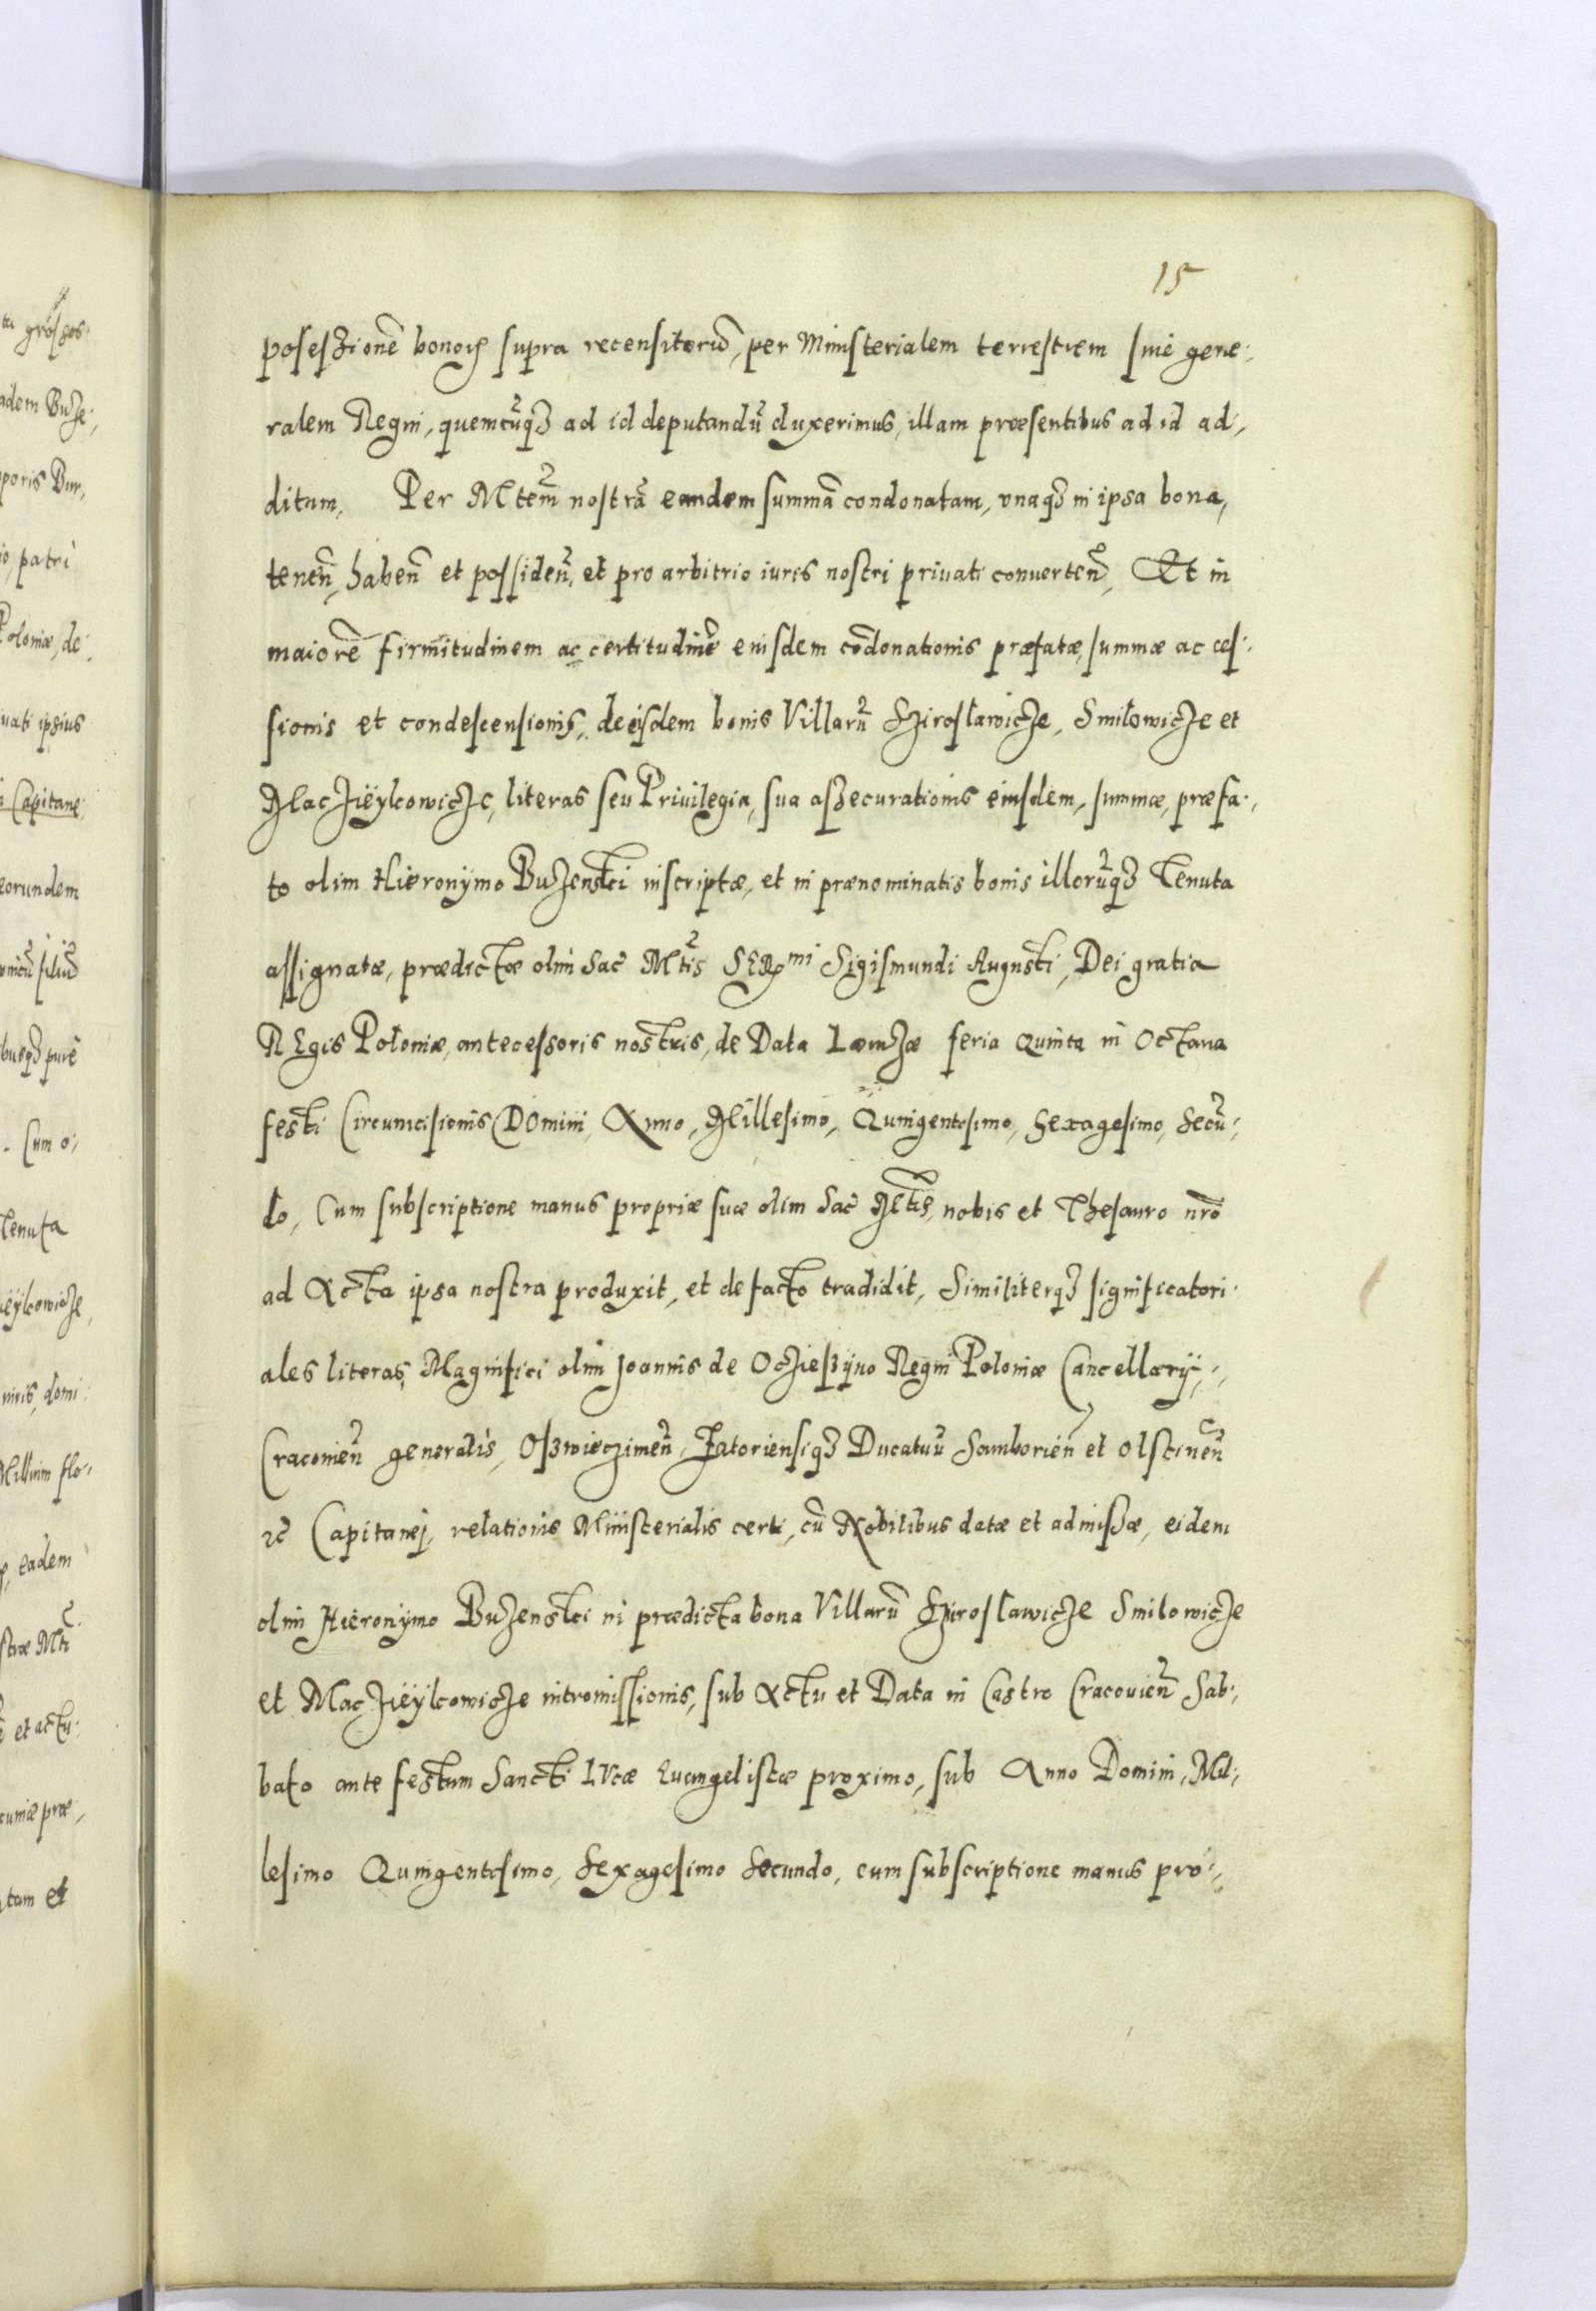 15
posesзionē bonoꝝ supra recensitorū, per Ministerialem terrestrem sine gene:
ralem Regni, quemcūqꝫ ad id deputandū duxerimus, illam præsentibus ad id ad,
ditum, Per Mtem̄ nostrā eandem summā condonatam, vnaqꝫ in ipsa bona,
tenen̄, haben̄ et possiden̄, et pro arbitrio iuris nostri priuati conuerten̄, Et in
maiorē firmitudinem ac certitudinē eiusdem cōdonationis præfatæ, summæ ac ces:
sionis et condescensionis, de eisdem bonis Villarū Sziroslawicze, Smilowicze et
Macziėÿkowicze, literas seu Priuilegia, sua assecurationis eiusdem, summæ, præfa:,
to olim Hieronÿmo Buzenski inscriptæ, et in prænominatis bonis illorūqꝫ Tenuta
assignatæ, prædictæ olim Sac̄ Mtis̄ SERmi Sigismundi Augusti, Dei gratia
REgis Poloniæ, antecessoris nostris, de Data Lomzæ feria quinta in Octaua
festi Circumcisionis DOmini, Anno, Millesimo, Quingentesimo, Sexagesimo, Secū:,
do, Cum subscriptione manus propriæ suæ olim Sac̄ Mtis̄, nobis et Thesauro nr̄o
ad Acta ipsa nostra produxit, et de facto tradidit, Similiterqꝫ significatori:
ales literas, Magnifici olim Joannis de Ocziesзÿno Regni Poloniæ Cancellarÿ,
Cracouien̄ generalis, Osзwieczimen̄, Zatoriensiqꝫ Ducatuū Samborien̄ et Olstinen̄
ꝛc̄ Capitanej, relationis Ministerialis certi, cū Nobilibus datæ et admissæ, eidem
olim Hieronÿmo Buzenski in prædicta bona Villarū Sziroslawicze Smilowicze
et Macziėÿkowicze intromissionis, sub Actu et Data in Castro Cracouien̄ Sab:,
bato ante festum Sancti LVcæ Euangelistæ proximo, sub Anno Domini, Mil:,
lesimo Quingentesimo, Sexagesimo Secundo, cum subscriptione manus pro:,